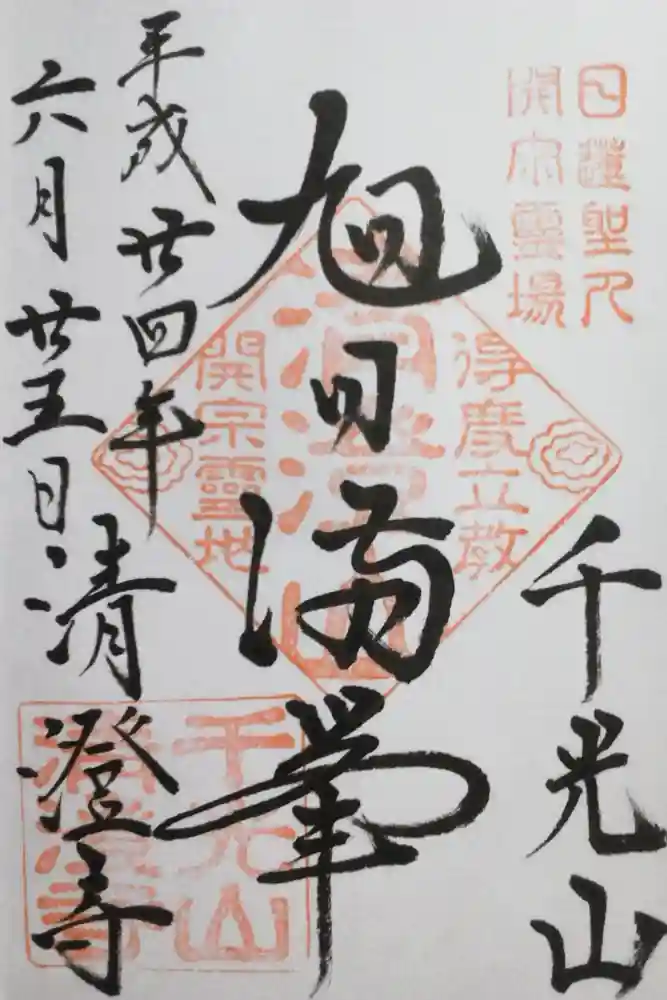 日蓮聖人
開宗靈場
千光山
得度立教
清澄山
開宗靈地
旭日満峯
平成廿四年
六月廿五日
清澄寺
千光山
清澄寺